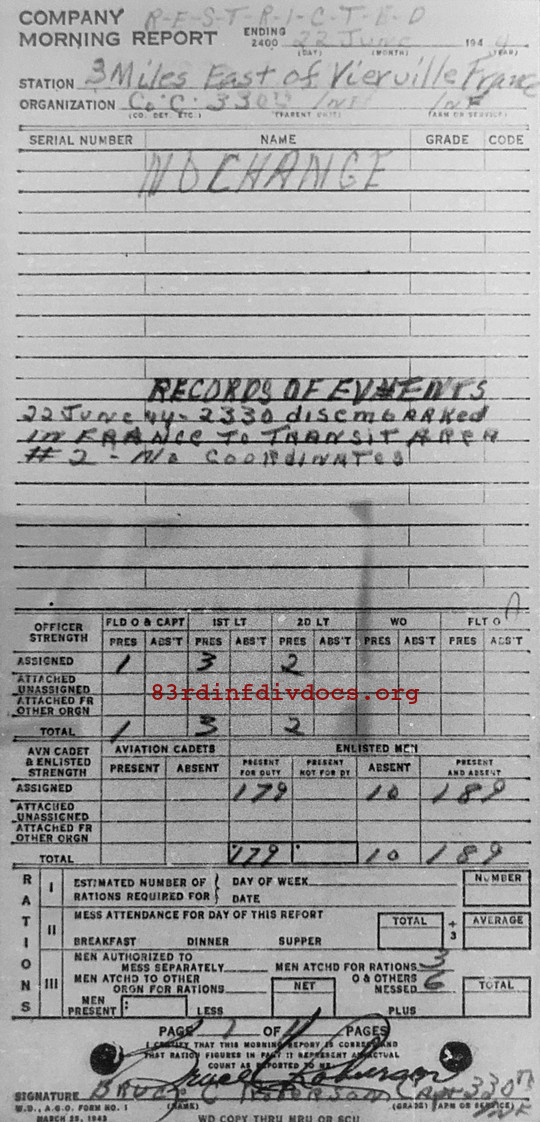 COMPANY R-E-S-T-R-I-C-T-E-D
MORNING REPORT ENDING 2400 22 June 1944
(DAY) (MONTH) (YEAR)
STATION 3 Miles East of Vierville France
ORGANIZATION Co C 330th Inf Inf
(CO. DET. ETC.) (PARENT UNIT) (ARM OR SERVICE)
SERIAL NUMBER NAME GRADE CODE
NO CHANGE
RECORDS OF EVENTS
22 June 44 - 2330 disembarked
in France to Transit Area
# 2 - No Coordinates
OFFICER STRENGTH FLD O & CAPT 1ST LT 2D LT WO FLT O
PRES ABS'T PRES ABS'T PRES ABS'T PRES ABS'T PRES ABS'T
ASSIGNED 1 3 2
ATTACHED UNASSIGNED
83rdinfdivdocs.org
ATTACHED FR OTHER ORGN
TOTAL 1 3 2
AVN CADET & ENLISTED STRENGTH AVIATION CADETS ENLISTED MEN
PRESENT ABSENT PRESENT FOR DUTY PRESENT NOT FOR DY ABSENT PRESENT AND ABSENT
ASSIGNED 179 10 189
ATTACHED UNASSIGNED
ATTACHED FR OTHER ORGN
TOTAL 179 10 189
RATIONS
I ESTIMATED NUMBER OF RATIONS REQUIRED FOR DAY OF WEEK NUMBER
DATE
II MESS ATTENDANCE FOR DAY OF THIS REPORT TOTAL ÷ 3 AVERAGE
BREAKFAST DINNER SUPPER
III MEN AUTHORIZED TO MESS SEPARATELY MEN ATCHD FOR RATIONS 3
MEN ATCHD TO OTHER ORGN FOR RATIONS NET O & OTHERS MESSED 6 TOTAL
MEN PRESENT: LESS PLUS
PAGE 1 OF PAGES
I CERTIFY THAT THIS MORNING REPORT IS CORRECT AND
THAT RATION FIGURES IN PART II REPRESENT AN ACTUAL
COUNT AS REPORTED TO ME
SIGNATURE Bruce C Roberson Capt 330th Inf
W.D., A.G.O. FORM NO. 1 (NAME) (GRADE) (ARM OR SERVICE)
MARCH 25, 1943 WD COPY THRU MRU OR SCU